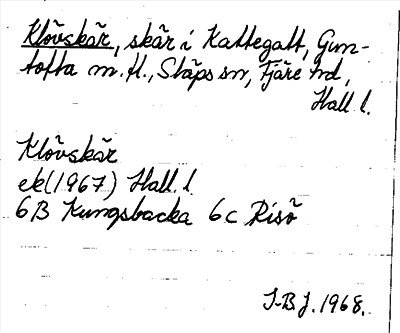 Klövskär, skär i Kattegatt, Gun-
tofta m.fl., Släps sn, Fjäre hd,
Hall. l.
Klövskär
ek (1967) Hall. l.
6B Kungsbacka 6c Risö
I-B J. 1968.